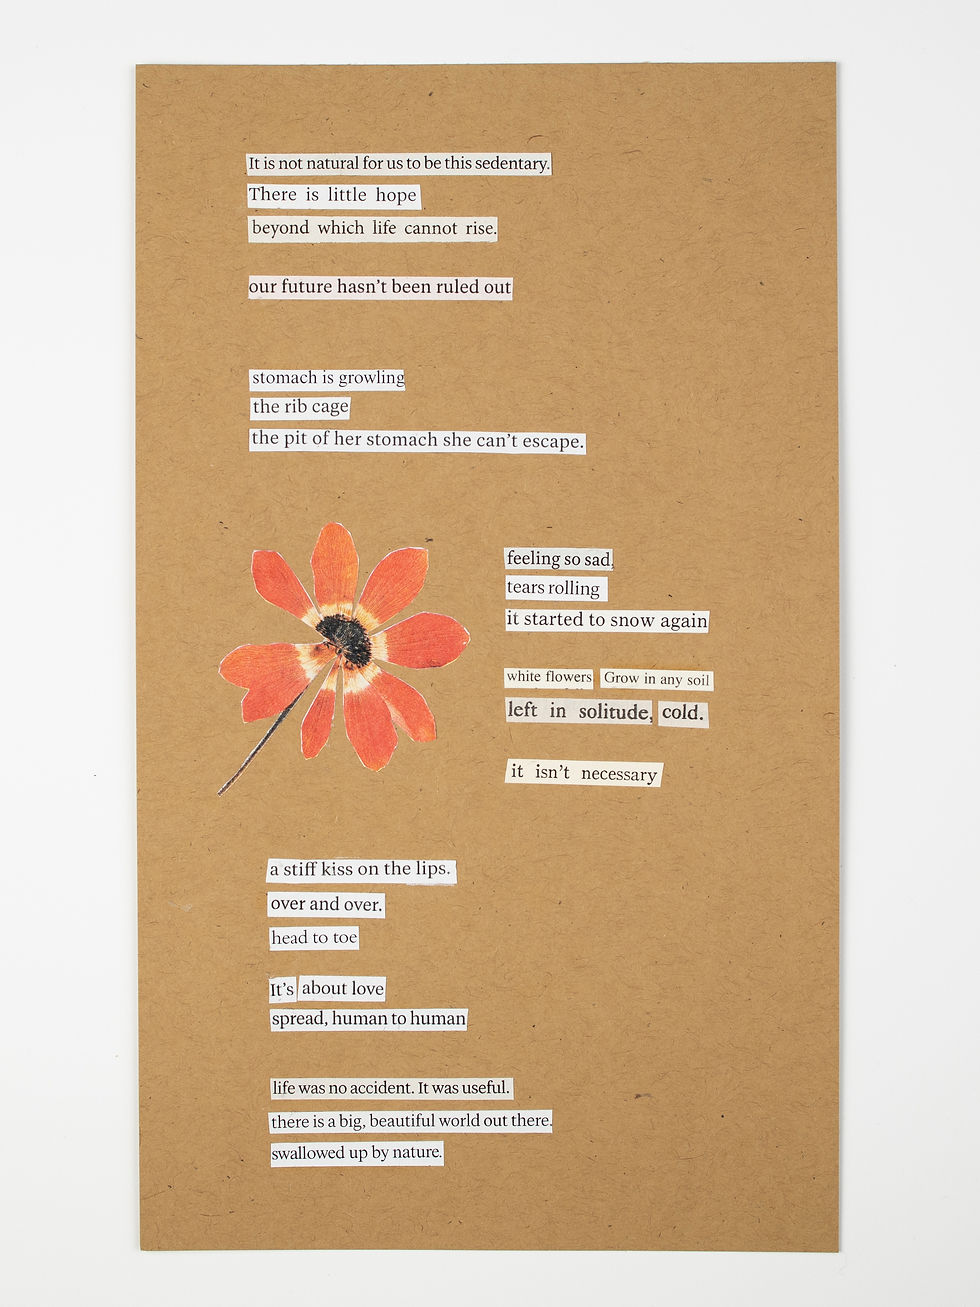 It is not natural for us to be this sedentary.
There is little hope
beyond which life cannot rise.
our future hasn't been ruled out
stomach is growling
the rib cage
the pit of her stomach she can't escape.
feeling so sad,
tears rolling
it started to snow again
white flowers Grow in any soil
left in solitude, cold.
it isn't necessary
a stiff kiss on the lips.
over and over.
head to toe
It's about love
spread, human to human
life was no accident. It was useful.
there is a big, beautiful world out there.
swallowed up by nature.